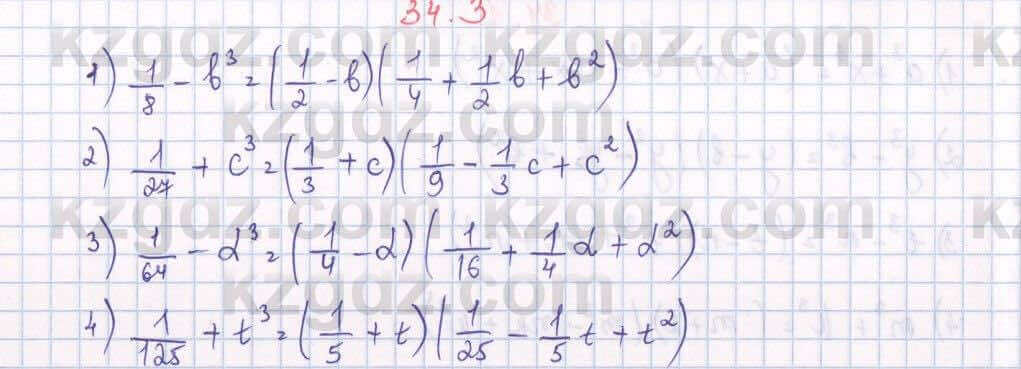 34.3
1) 1/8 - b³ = (1/2 - b)(1/4 + 1/2 b + b²)
2) 1/27 + c³ = (1/3 + c)(1/9 - 1/3 c + c²)
3) 1/64 - d³ = (1/4 - d)(1/16 + 1/4 d + d²)
4) 1/125 + t³ = (1/5 + t)(1/25 - 1/5 t + t²)
kzgdz.com
kzgdz.com
kzgdz.com
kzgdz.com